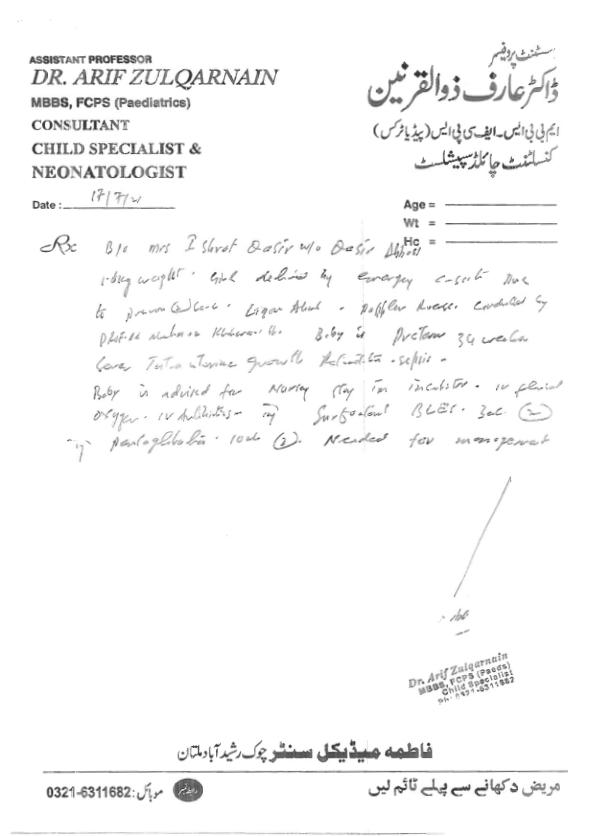 ASSISTANT PROFESSOR
DR. ARIF ZULQARNAIN
MBBS, FCPS (Paediatrics)
CONSULTANT
CHILD SPECIALIST &
NEONATOLOGIST
Date : 17/7/21
سٹنٹ پروفیسر
ڈاکٹر عارف ذوالقرنین
ایم بی بی ایس۔ ایف سی پی ایس (پیڈیاٹرکس)
کنسلٹنٹ چائلڈ سپیشلسٹ
Age =
Wt =
Hc =
Rx B/o Mrs Ishrat Qasir w/o Qasir Abbas
weight. Girl delivered by emergency c-section due
to Doppler conducted by
Baby is Preterm 34 weeks
Sever Intrauterine growth Retardation - sepsis -
Baby is advised for Nursery stay in incubator. iv fluid
oxygen. iv Antibiotics - inj Surfactant BLES. 3ml (2)
inj Pentaglobulin. 10ml (2). Needed for management
Dr. Arif Zulqarnain
MBBS, FCPS (Paeds)
Child Specialist
Ph: 0321-6311682
فاطمہ میڈیکل سنٹر چوک رشید آباد ملتان
مریض دکھانے سے پہلے ٹائم لیں
موبائل: 0321-6311682